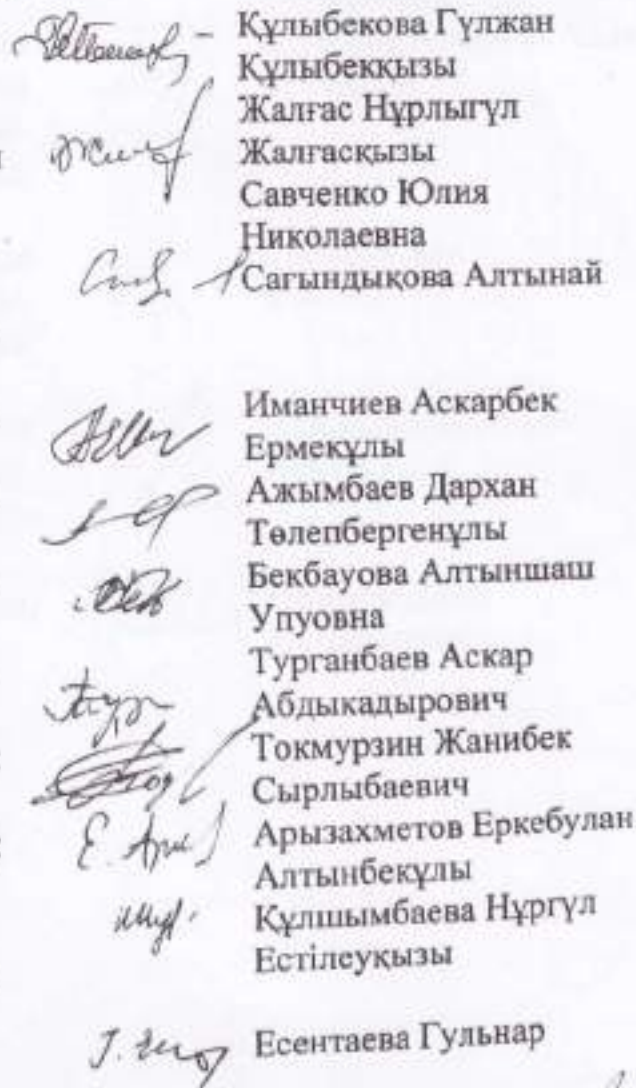 Құлыбекова Гүлжан
Құлыбекқызы
Жалғас Нұрлыгүл
Жалғасқызы
Савченко Юлия
Николаевна
Сагындықова Алтынай
Иманчиев Аскарбек
Ермекұлы
Ажымбаев Дархан
Төлепбергенұлы
Бекбауова Алтыншаш
Упуовна
Турганбаев Аскар
Абдыкадырович
Токмурзин Жанибек
Сырлыбаевич
Е. Арызахметов Еркебулан
Алтынбекұлы
Құлшымбаева Нұргүл
Естілеуқызы
Есентаева Гульнар